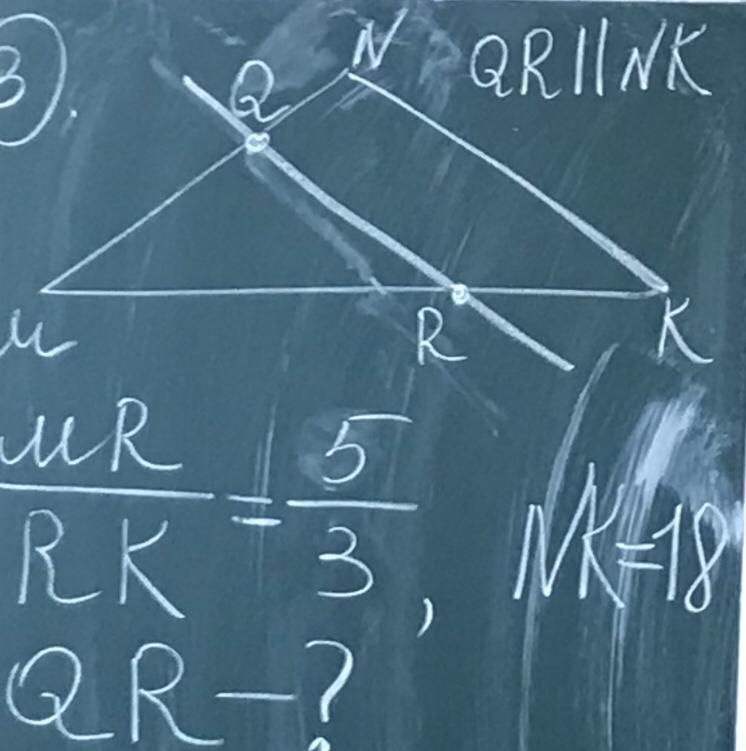 3).
QR||NK
Q
N
M
R
K
MR/RK = 5/3, NK=18
QR—?